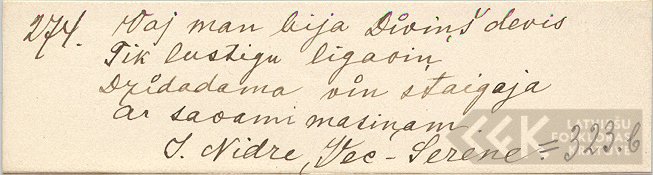 274. Vaj man bija Dåviņš devis
Tik lustigu ligaviņ
Dzīdadama viņ staigaja
Ar savami masiņam
J. Nidre, Vec-Serene = 323.b
LATVIEŠU
FOLKLORAS
KRĀTUVE